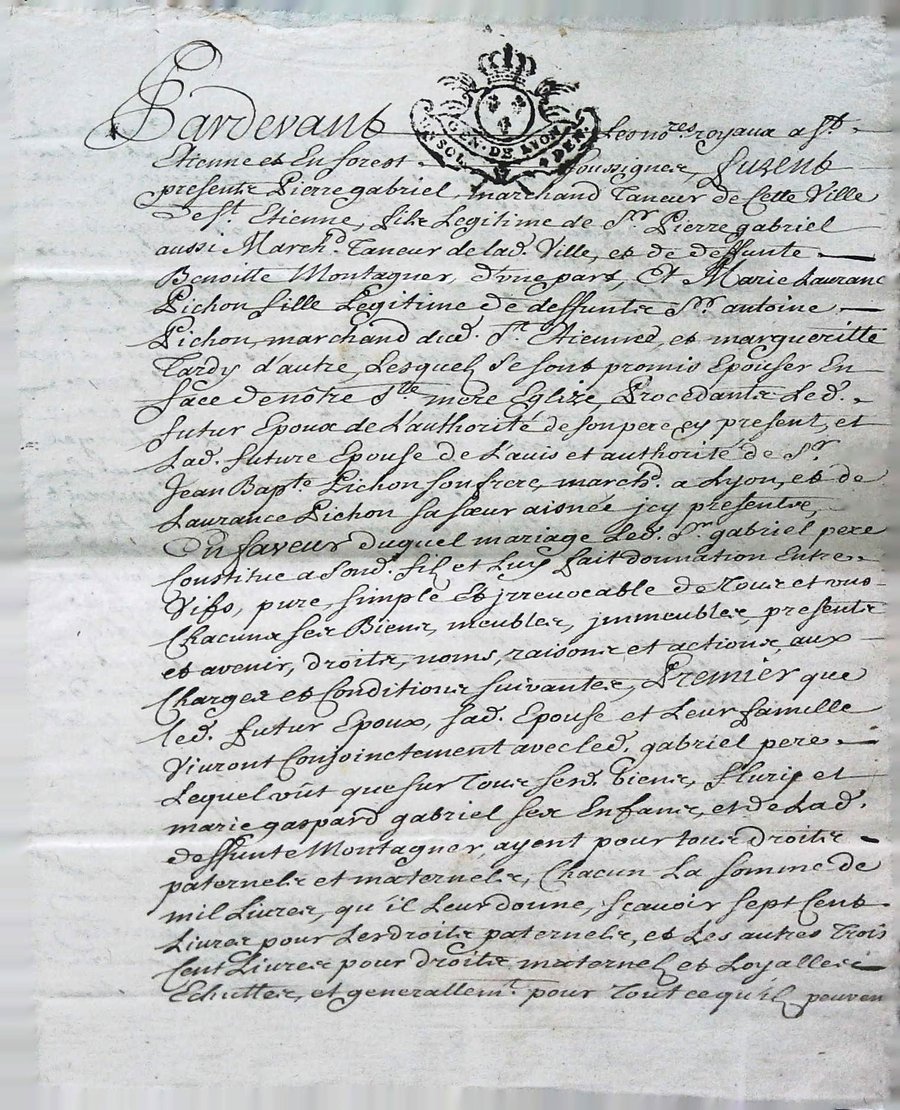 Pardevant Les no.res royaux a St
GEN. DE LYON
Etienne et En forest soussignes, furent
presents Pierre gabriel, marchand Taneur de Cette Ville
de St Etienne, fils Legitime de Sr. Pierre gabriel
aussi March.d Taneur de lad. Ville, et de deffunte
Benoitte Montagner, d'une part, Et Marie Lauranc
Pichon fille Legitime de deffunts Sr. antoine
Pichon, marchand dud. St. Etienne, et margueritte
Tardy d'autre, Lesquels se sont promis Epouser En
face de nôtre Ste mere Eglize, Procedants Led.
futur Epoux de L'authorité de son pere cy present, et
Lad. future Epouse de L'auis et authorité de Sr.
Jean Bapte. Pichon son frere, march.d a Lyon, et de
Laurance Pichon sa sœur aisnée jcy presents,
En faveur duquel mariage Led. Sr. gabriel pere
Constitue a sond. fils et Luy fait donnation Entre
Vifs, pure, simple Et jrreuocable de Tous et uns
Chacuns ses Biens, meubles, jmmeubles, presents
et avenir, droits, noms, raisons et actions, aux
Charges et Conditions suivantes, Premier que
led. futur Epoux, sad. Epouse et Leur famille
Vivront Conjoinctement avec led. gabriel pere
Lequel vût que sur Tous sesd. biens, fluris et
marie gaspard gabriel ses Enfans, et de Lad.
deffunte Montagner, ayent pour tous droits
paternels et maternels, Chacun La somme de
mil Livres, qu'il Leur donne, sçavoir sept Cent
Livres pour Les droits paternels, et Les autres Trois
Cent Livres pour droits maternels et Loyalles
Echuttes, et generallemt. pour Tout ce qu'ils peuven